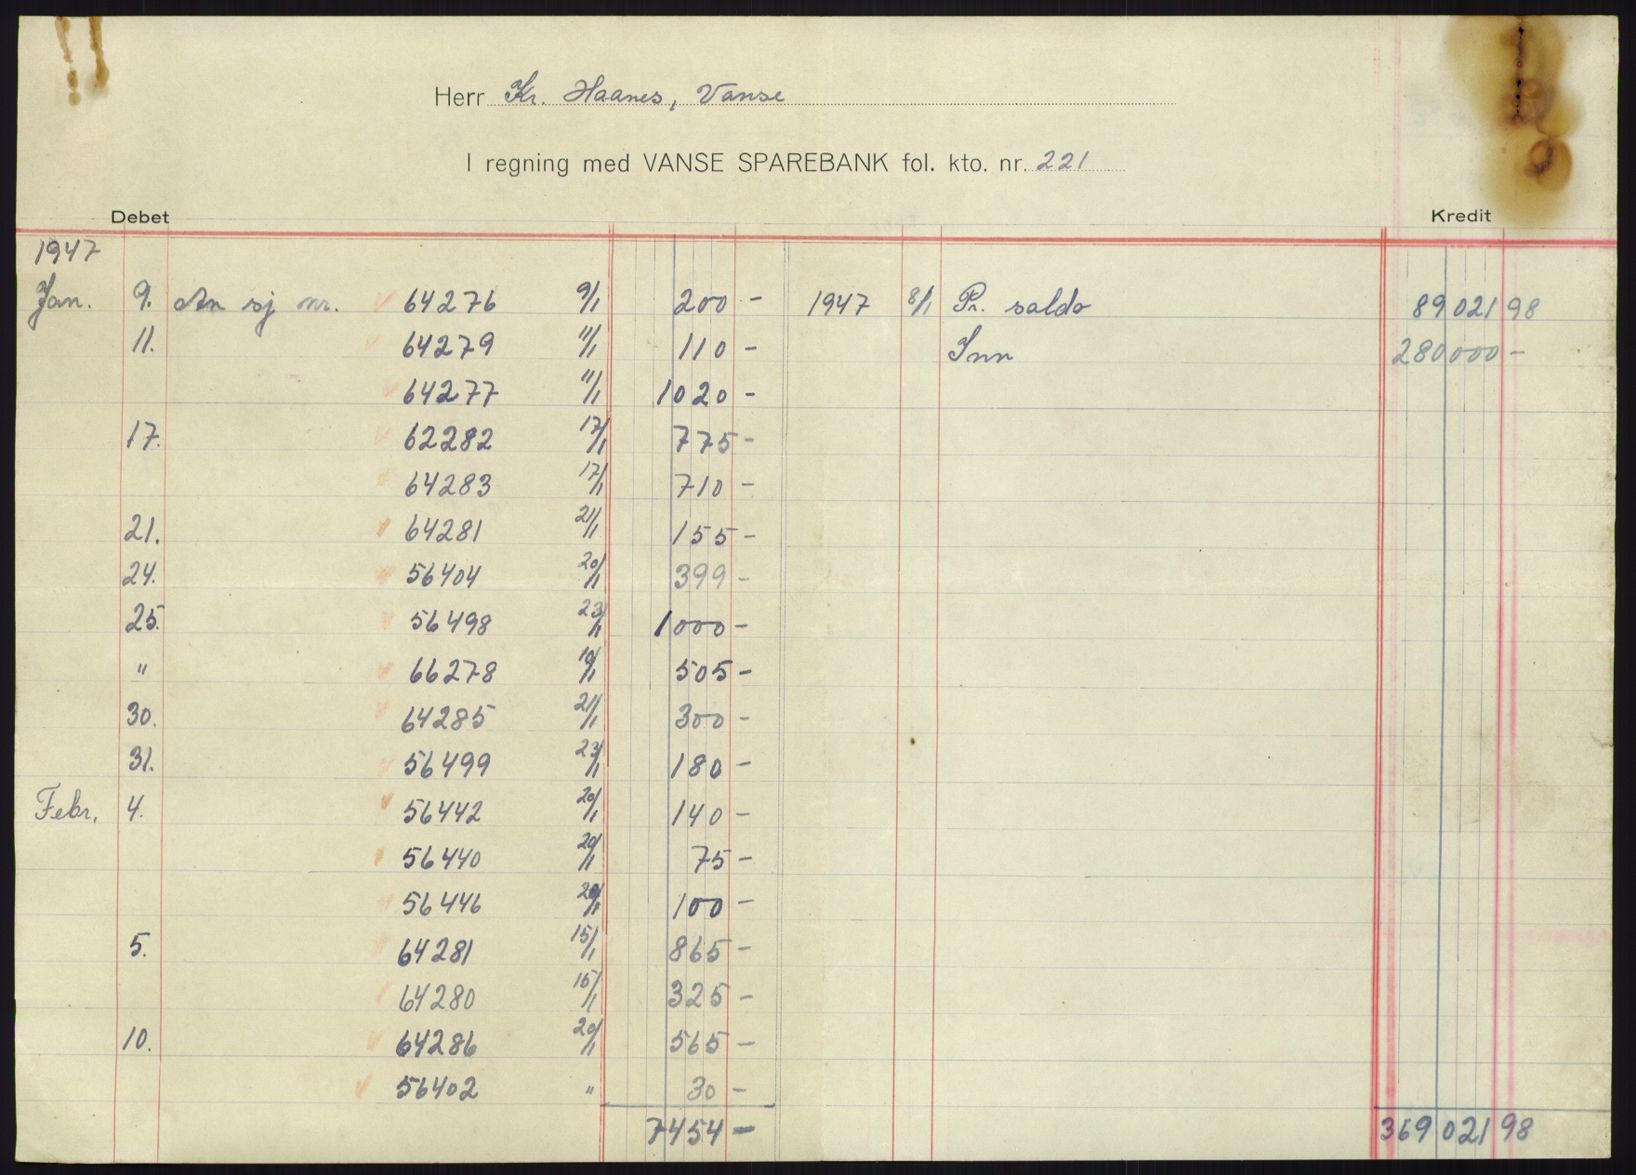 Herr Kr. Haanes, Vanse
I regning med VANSE SPAREBANK fol. kto. nr. 221
Debet Kredit
1947
Jan. 9. An sj nr. 64276 9/1 200 - 1947 8/1 Pr. saldo 89021 98
11. 64279 11/1 110 - Inn 280000 -
64277 11/1 1020 -
17. 62282 17/1 775 -
64283 17/1 710 -
21. 64281 21/1 155 -
24. 56404 20/1 399 -
25. 56498 23/1 1000 -
" 66278 10/1 505 -
30. 64285 21/1 300 -
31. 56499 23/1 180 -
Febr. 4. 56442 20/1 140 -
56440 20/1 75 -
56446 20/1 100 -
5. 64281 15/1 865 -
64280 15/1 325 -
10. 64286 20/1 565 -
56402 " 30 -
7454 - 369021 98